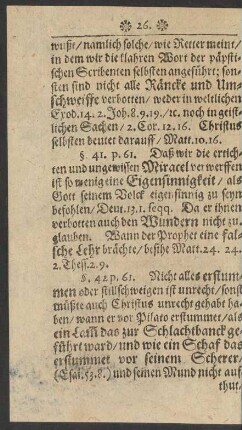 * 26. *
wußt/ namlich solche/ wie Retter meint/
in dem wir die klahren Wort der päpsti-
schen Scribenten selbsten angeführt; son-
sten sind nicht alle Räncke und Um-
schweiffe verbotten/ weder in weltlichen
Exod.14.2. Joh.8.9.19./ ꝛc. noch in geist-
lichen Sachen/ 2.Cor.12.16. Christus
selbsten deutet darauff/ Matt.10.16.
§. 41. p. 61. Daß wir die ertich-
ten und ungewissen Miracel verwerffen
ist so wenig eine Eigensinnigkeit/ als
Gott seinem Volck eigensinnig zu seyn
befohlen/ Deut.13.1.seqq. Da er ihnen
verbotten auch den Wundern nicht zu-
glauben. Wann der Prophet eine fal-
sche Lehr brächte/ besihe Matt.24. 24.
2.Thess.2.9.
§. 42 p. 61. Nicht alles erstum-
men oder stillschweigen ist unrecht/ sonst
müßte auch Christus unrecht gehabt ha-
ben/ wann er vor Pilato erstummet/ als
ein Lam̃ das zur Schlachtbanck ge-
führt ward/ und wie ein Schaf das
erstummet vor seinem Scherer/
(Esai.53.8.) und seinen Mund nicht auf
thut/